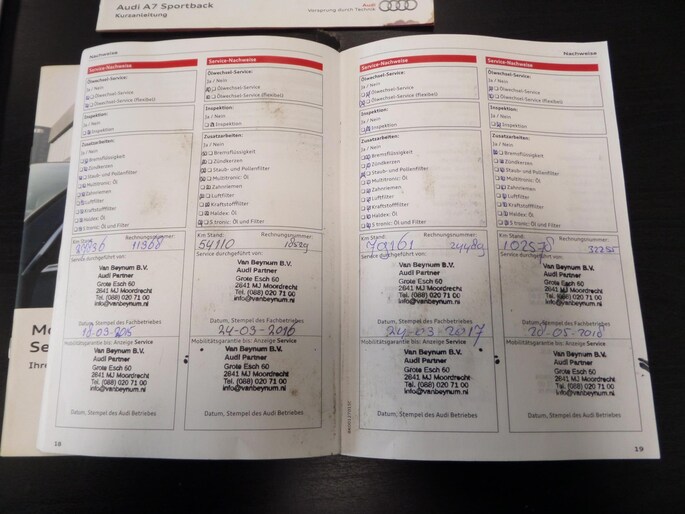 Audi A7 Sportback
Kurzanleitung
Audi
Vorsprung durch Technik
Nachweise
Service-Nachweise
Ölwechsel-Service:
Ja / Nein
Ölwechsel-Service
Ölwechsel-Service (flexibel)
Inspektion:
Ja / Nein
Inspektion
Zusatzarbeiten:
Ja / Nein
Bremsflüssigkeit
Zündkerzen
Staub- und Pollenfilter
Multitronic: Öl
Zahnriemen
Luftfilter
Kraftstofffilter
Haldex: Öl
S tronic: Öl und Filter
Km Stand: Rechnungsnummer:
11968
Service durchgeführt von:
Van Beynum B.V.
Audi Partner
Grote Esch 60
2841 MJ Moordrecht
Tel. (088) 020 71 00
info@vanbeynum.nl
Datum, Stempel des Fachbetriebes
Mobilitätsgarantie bis: Anzeige Service
Van Beynum B.V.
Audi Partner
Grote Esch 60
2841 MJ Moordrecht
Tel. (088) 020 71 00
info@vanbeynum.nl
Datum, Stempel des Audi Betriebes
18
Service-Nachweise
Ölwechsel-Service:
Ja / Nein
Ölwechsel-Service
Ölwechsel-Service (flexibel)
Inspektion:
Ja / Nein
Inspektion
Zusatzarbeiten:
Ja / Nein
Bremsflüssigkeit
Zündkerzen
Staub- und Pollenfilter
Multitronic: Öl
Zahnriemen
Luftfilter
Kraftstofffilter
Haldex: Öl
S tronic: Öl und Filter
Km Stand: Rechnungsnummer:
54110
Service durchgeführt von:
Van Beynum B.V.
Audi Partner
Grote Esch 60
2841 MJ Moordrecht
Tel. (088) 020 71 00
info@vanbeynum.nl
Datum, Stempel des Fachbetriebes
24-03-2016
Mobilitätsgarantie bis: Anzeige Service
Van Beynum B.V.
Audi Partner
Grote Esch 60
2841 MJ Moordrecht
Tel. (088) 020 71 00
info@vanbeynum.nl
Datum, Stempel des Audi Betriebes
Service-Nachweise
Ölwechsel-Service:
Ja / Nein
Ölwechsel-Service
Ölwechsel-Service (flexibel)
Inspektion:
Ja / Nein
Inspektion
Zusatzarbeiten:
Ja / Nein
Bremsflüssigkeit
Zündkerzen
Staub- und Pollenfilter
Multitronic: Öl
Zahnriemen
Luftfilter
Kraftstofffilter
Haldex: Öl
S tronic: Öl und Filter
Km Stand: Rechnungsnummer:
24489
Service durchgeführt von:
Van Beynum B.V.
Audi Partner
Grote Esch 60
2841 MJ Moordrecht
Tel. (088) 020 71 00
info@vanbeynum.nl
Datum, Stempel des Fachbetriebes
24-03-2017
Mobilitätsgarantie bis: Anzeige Service
Van Beynum B.V.
Audi Partner
Grote Esch 60
2841 MJ Moordrecht
Tel. (088) 020 71 00
info@vanbeynum.nl
Datum, Stempel des Audi Betriebes
Nachweise
Service-Nachweise
Ölwechsel-Service:
Ja / Nein
Ölwechsel-Service
Ölwechsel-Service (flexibel)
Inspektion:
Ja / Nein
Inspektion
Zusatzarbeiten:
Ja / Nein
Bremsflüssigkeit
Zündkerzen
Staub- und Pollenfilter
Multitronic: Öl
Zahnriemen
Luftfilter
Kraftstofffilter
Haldex: Öl
S tronic: Öl und Filter
Km Stand: Rechnungsnummer:
102578
Service durchgeführt von:
Van Beynum B.V.
Audi Partner
Grote Esch 60
2841 MJ Moordrecht
Tel. (088) 020 71 00
info@vanbeynum.nl
Datum, Stempel des Fachbetriebes
Mobilitätsgarantie bis: Anzeige Service
Van Beynum B.V.
Audi Partner
Grote Esch 60
2841 MJ Moordrecht
Tel. (088) 020 71 00
info@vanbeynum.nl
Datum, Stempel des Audi Betriebes
19
Mo
Se
Ihr